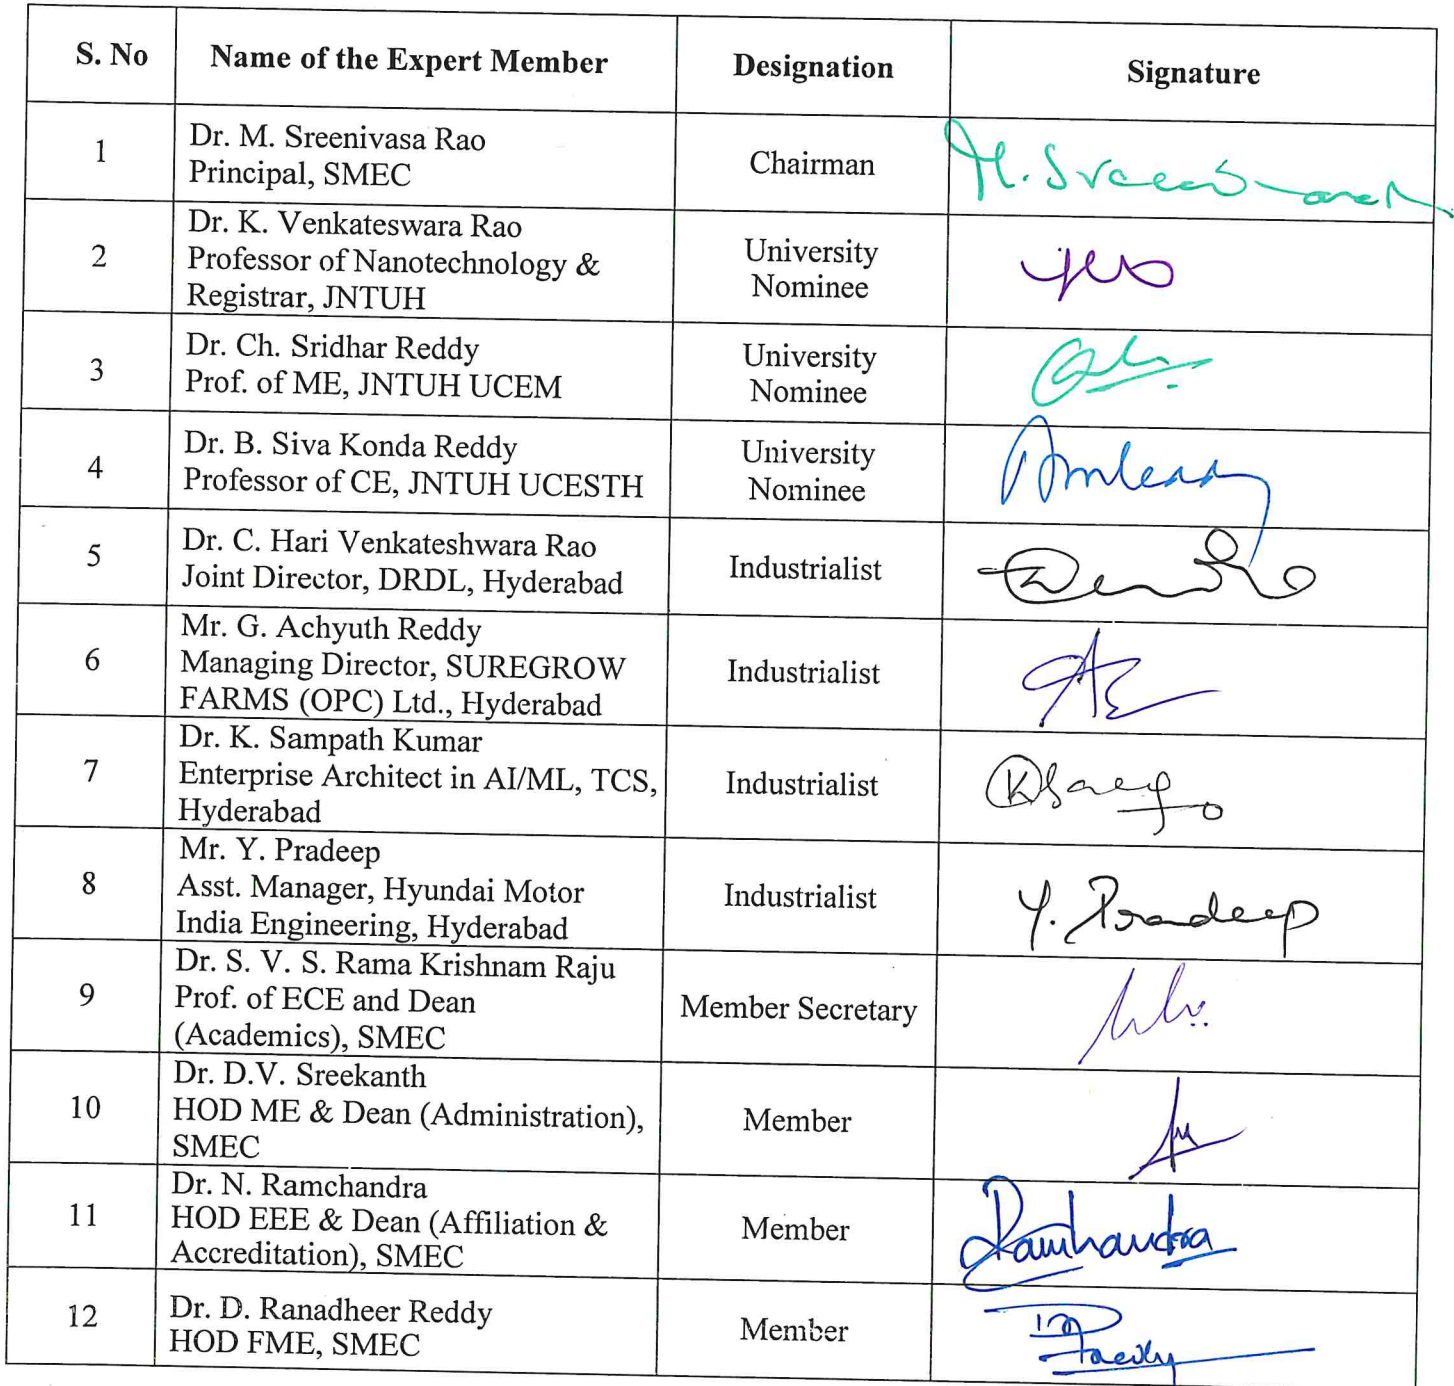 S. No Name of the Expert Member Designation Signature
1 Dr. M. Sreenivasa Rao
Principal, SMEC Chairman
2 Dr. K. Venkateswara Rao
Professor of Nanotechnology &
Registrar, JNTUH
University
Nominee
3 Dr. Ch. Sridhar Reddy
Prof. of ME, JNTUH UCEM
University
Nominee
4 Dr. B. Siva Konda Reddy
Professor of CE, JNTUH UCESTH
University
Nominee
5 Dr. C. Hari Venkateshwara Rao
Joint Director, DRDL, Hyderabad
Industrialist
6 Mr. G. Achyuth Reddy
Managing Director, SUREGROW
FARMS (OPC) Ltd., Hyderabad
Industrialist
7 Dr. K. Sampath Kumar
Enterprise Architect in AI/ML, TCS,
Hyderabad
Industrialist
8 Mr. Y. Pradeep
Asst. Manager, Hyundai Motor
India Engineering, Hyderabad
Industrialist
Y. Pradeep
9 Dr. S. V. S. Rama Krishnam Raju
Prof. of ECE and Dean
(Academics), SMEC
Member Secretary
10 Dr. D.V. Sreekanth
HOD ME & Dean (Administration),
SMEC
Member
11 Dr. N. Ramchandra
HOD EEE & Dean (Affiliation &
Accreditation), SMEC
Member
Ramchandra
12 Dr. D. Ranadheer Reddy
HOD FME, SMEC
Member